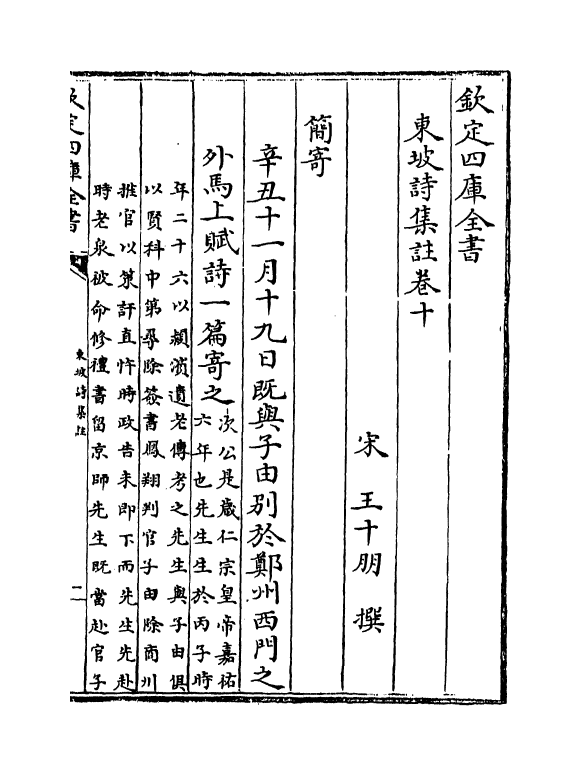 欽定四庫全書
東坡詩集註卷十
宋 王十朋 撰
簡寄
辛丑十一月十九日既與子由別於鄭州西門之
外馬上賦詩一篇寄之
次公是歲仁宗皇帝嘉祐
六年也先生生於丙子時
年二十六以潁濱遺老傳考之先生與子由俱
以賢科中第尋除簽書鳳翔判官子由除商州
推官以策訐直忤時政告未即下而先生先赴
時老泉被命修禮書留京師先生既當赴官子
欽定四庫全書
東坡詩集註